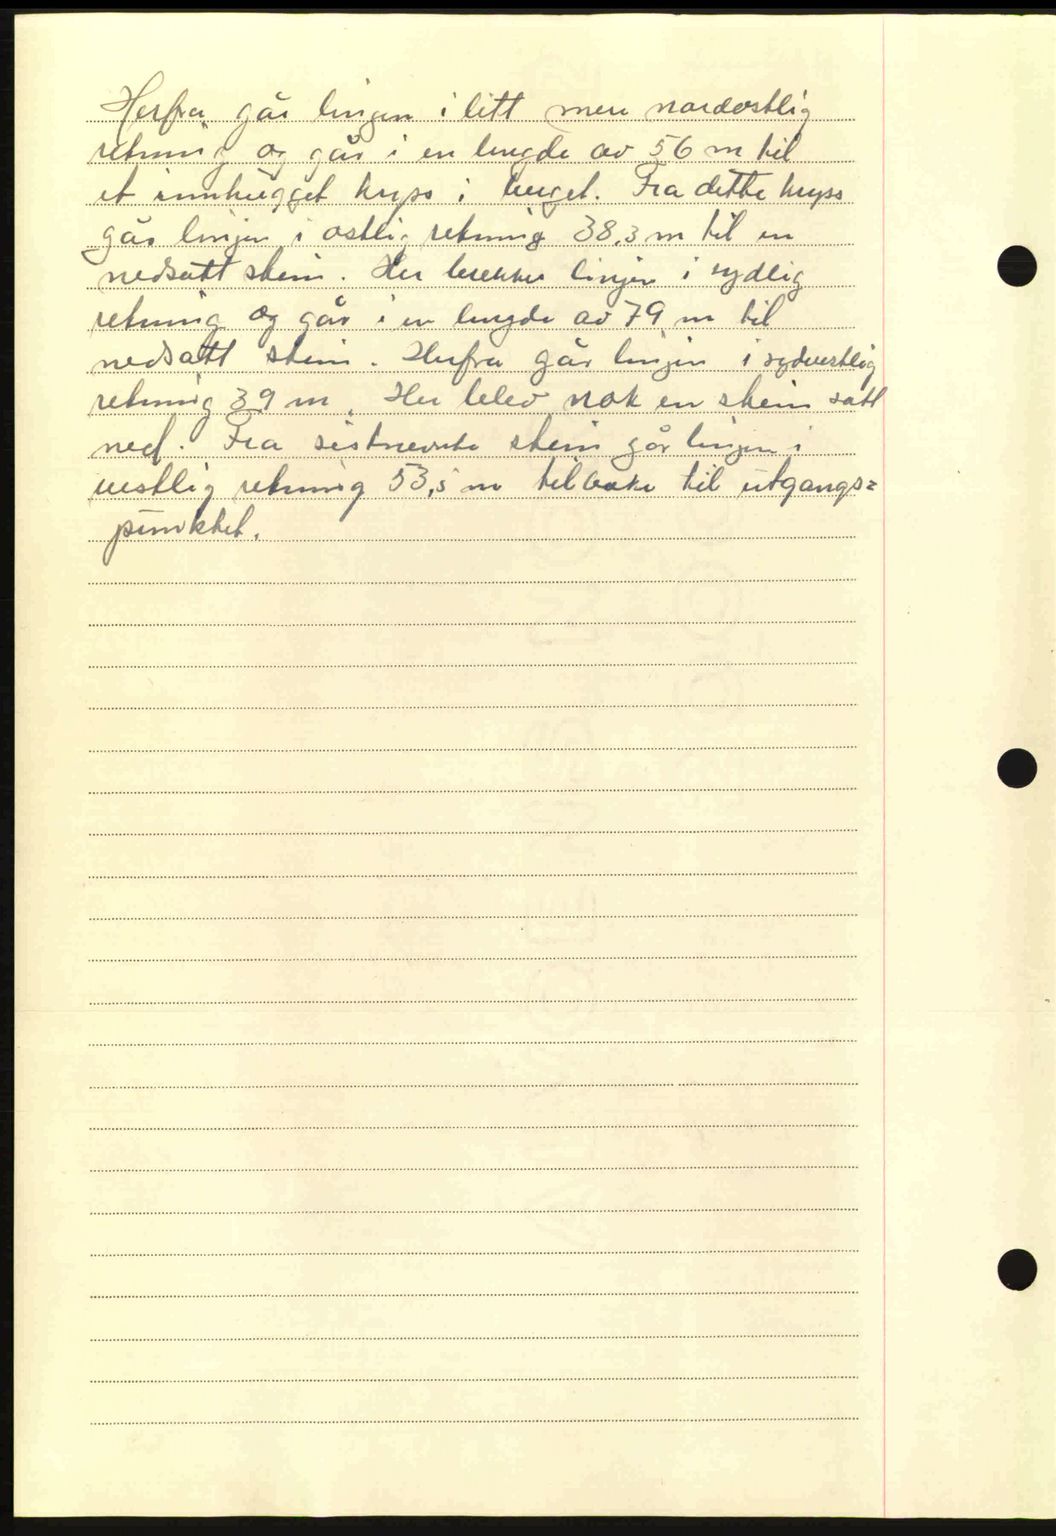 Herfra går linjen i litt mere nordostlig
retning og går i en lengde av 56 m til
et innhugget kryss i berget. Fra dette kryss
går linjen i ostlig retning 38,3 m til en
nedsatt stein. Her brekker linjen i sydlig
retning og går i en lengde av 79 m til
nedsatt stein. Herfra går linjen i sydvestlig
retning 39 m. Her blev nok en stein satt
ned. Fra sistnevnte stein går linjen i
vestlig retning 53,5 m tilbake til utgangs=
punktet.